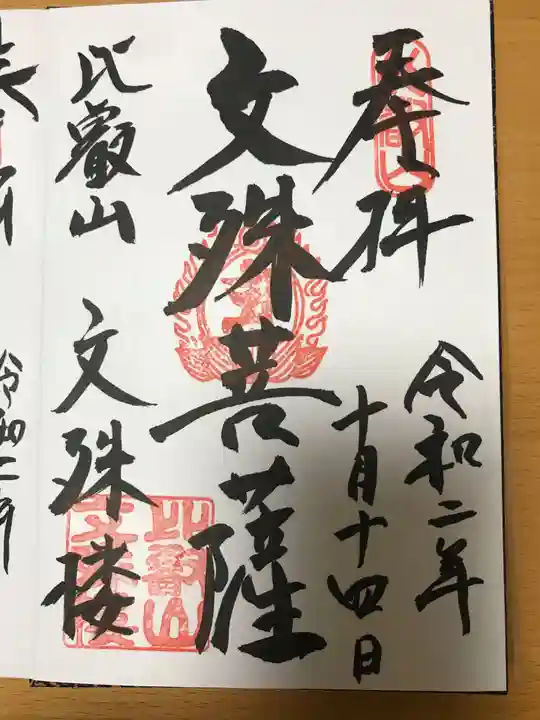 奉拝
令和二年
十月十四日
文殊菩薩
比叡山 文殊楼
比叡山
令和二年